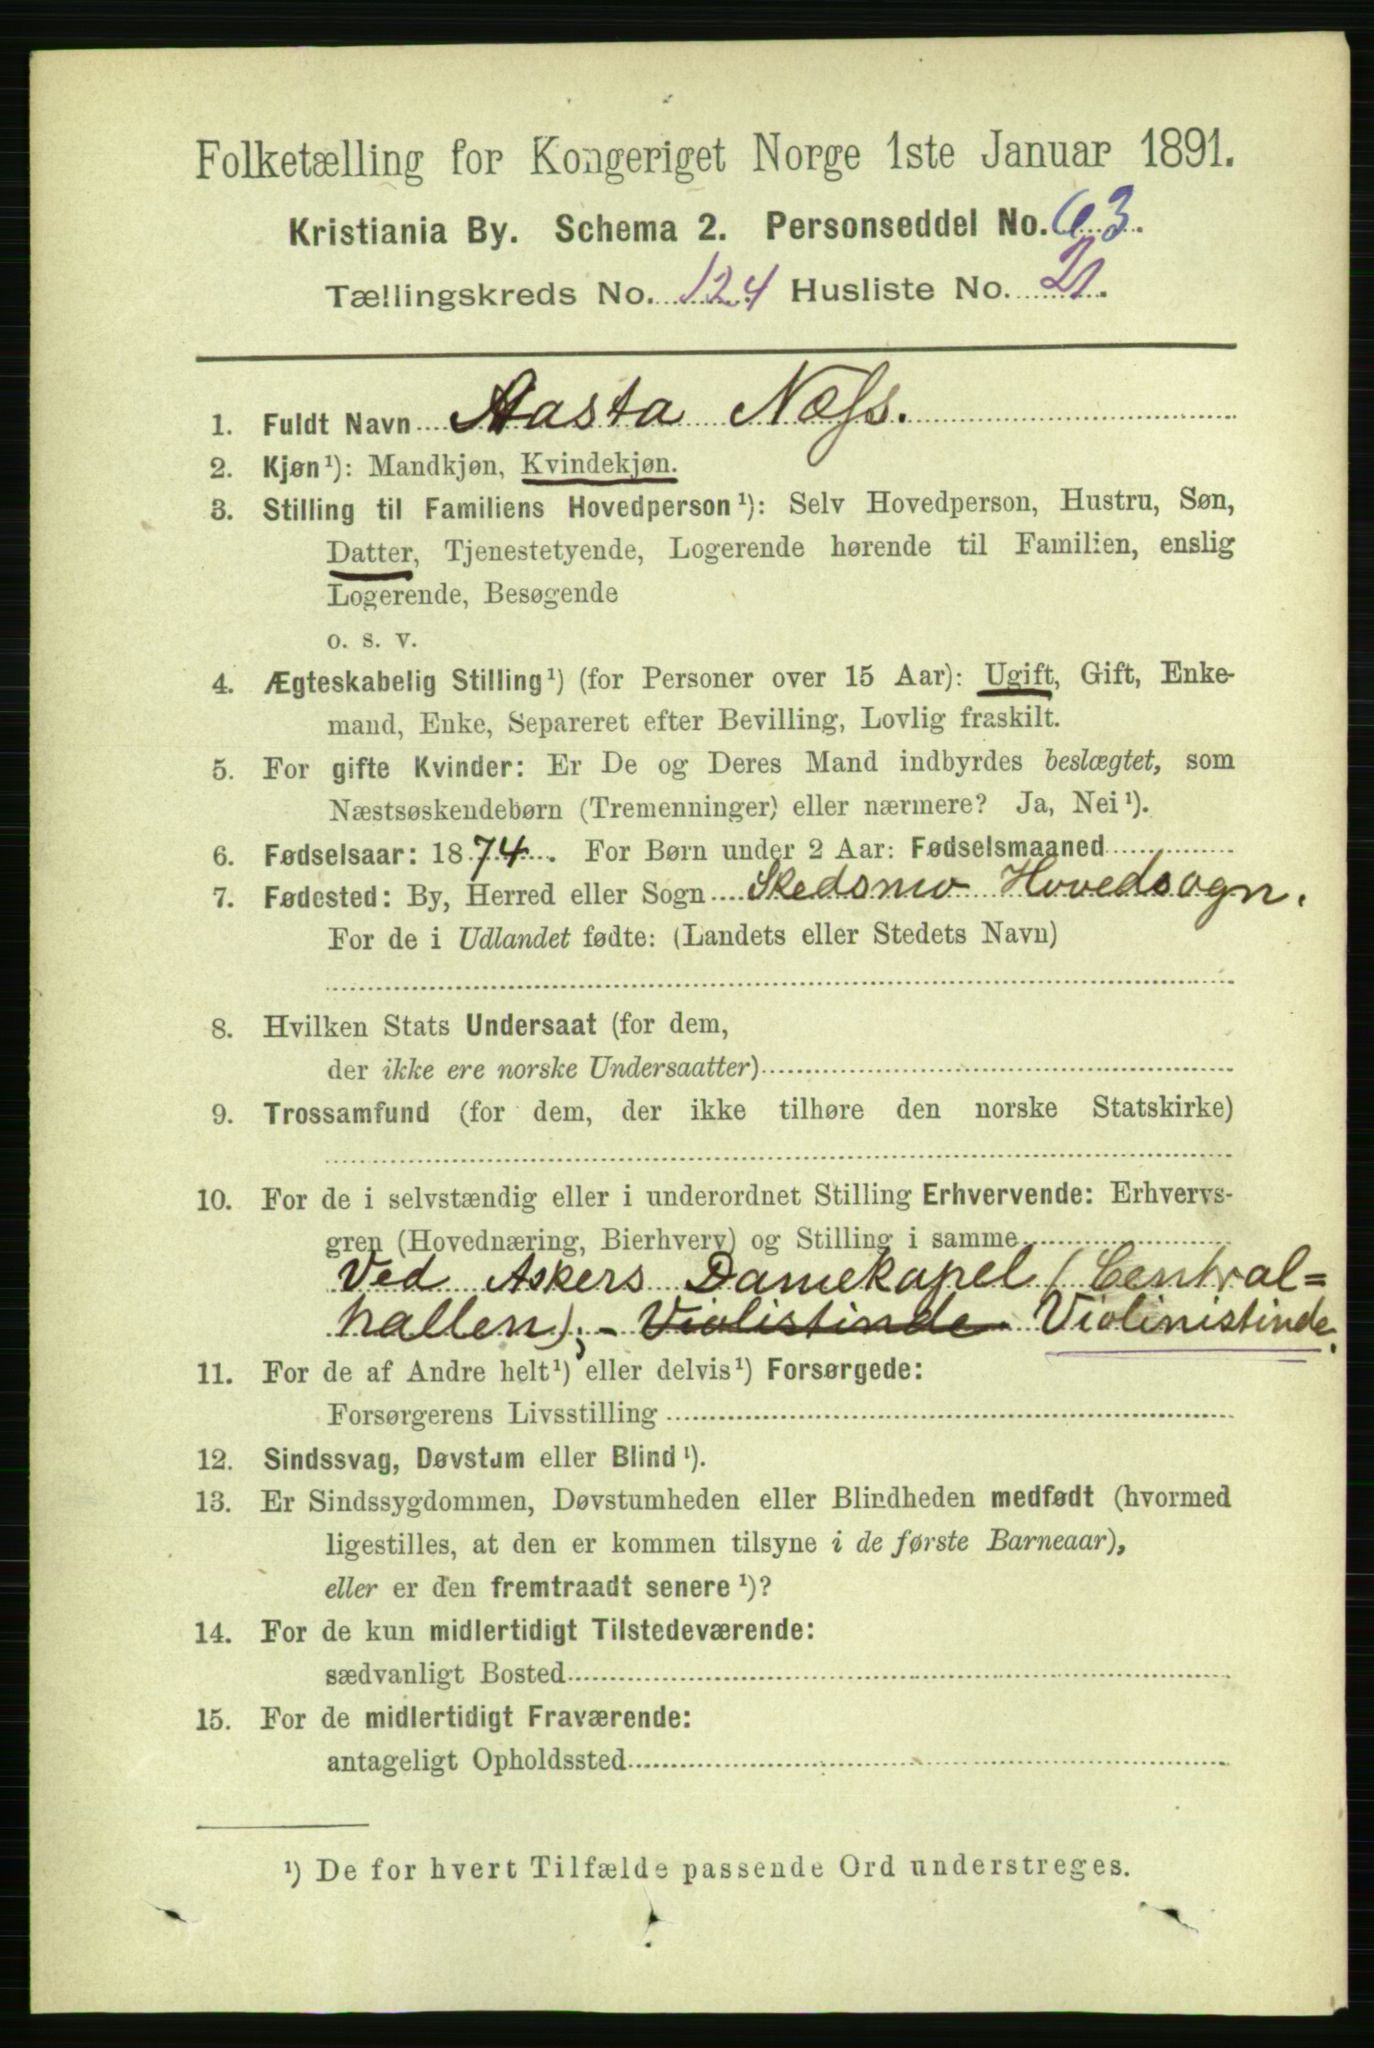 Folketælling for Kongeriget Norge 1ste Januar 1891.
Kristiania By. Schema 2. Personseddel No. 63.
Tællingskreds No. 124 Husliste No. 21.
1. Fuldt Navn Aasta Næss.
2. Kjøn¹): Mandkjøn, Kvindekjøn.
3. Stilling til Familiens Hovedperson¹): Selv Hovedperson, Hustru, Søn,
Datter, Tjenestetyende, Logerende hørende til Familien, enslig
Logerende, Besøgende
o. s. v.
4. Ægteskabelig Stilling¹) (for Personer over 15 Aar): Ugift, Gift, Enke-
mand, Enke, Separeret efter Bevilling, Lovlig fraskilt.
5. For gifte Kvinder: Er De og Deres Mand indbyrdes beslægtet, som
Næstsøskendebørn (Tremenninger) eller nærmere? Ja, Nei¹).
6. Fødselsaar: 1874. For Børn under 2 Aar: Fødselsmaaned
7. Fødested: By, Herred eller Sogn Skedsmo Hovedsogn.
For de i Udlandet fødte: (Landets eller Stedets Navn)
8. Hvilken Stats Undersaat (for dem,
der ikke ere norske Undersaatter)
9. Trossamfund (for dem, der ikke tilhøre den norske Statskirke)
10. For de i selvstændig eller i underordnet Stilling Erhvervende: Erhvervs-
gren (Hovednæring, Bierhverv) og Stilling i samme
Ved Askers Damekapel (Central=
hallen); - Violistinde Violinistinde.
11. For de af Andre helt¹) eller delvis¹) Forsørgede:
Forsørgerens Livsstilling
12. Sindssvag, Døvstum eller Blind¹).
13. Er Sindssygdommen, Døvstumheden eller Blindheden medfødt (hvormed
ligestilles, at den er kommen tilsyne i de første Barneaar),
eller er den fremtraadt senere¹)?
14. For de kun midlertidigt Tilstedeværende:
sædvanligt Bosted
15. For de midlertidigt Fraværende:
antageligt Opholdssted
¹) De for hvert Tilfælde passende Ord understreges.